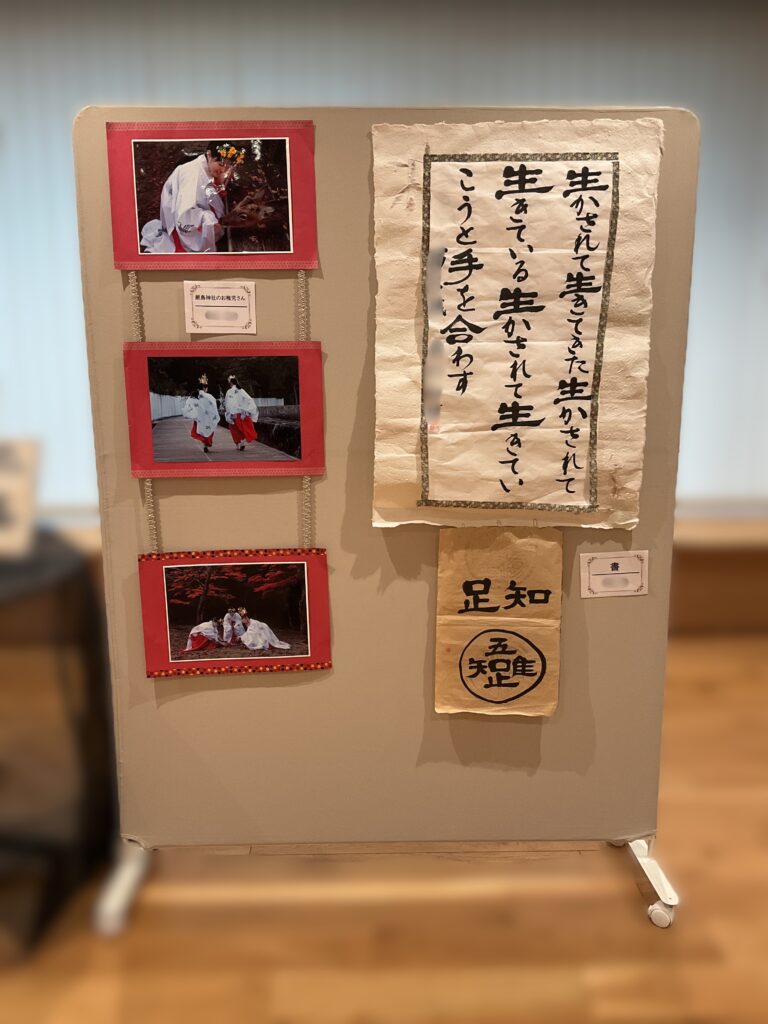 厳島神社のお稚児さん
生かされて生きてきた生かされて
生きている生かされて生きてい
こうと手を合わす
知足
吾唯知足
書